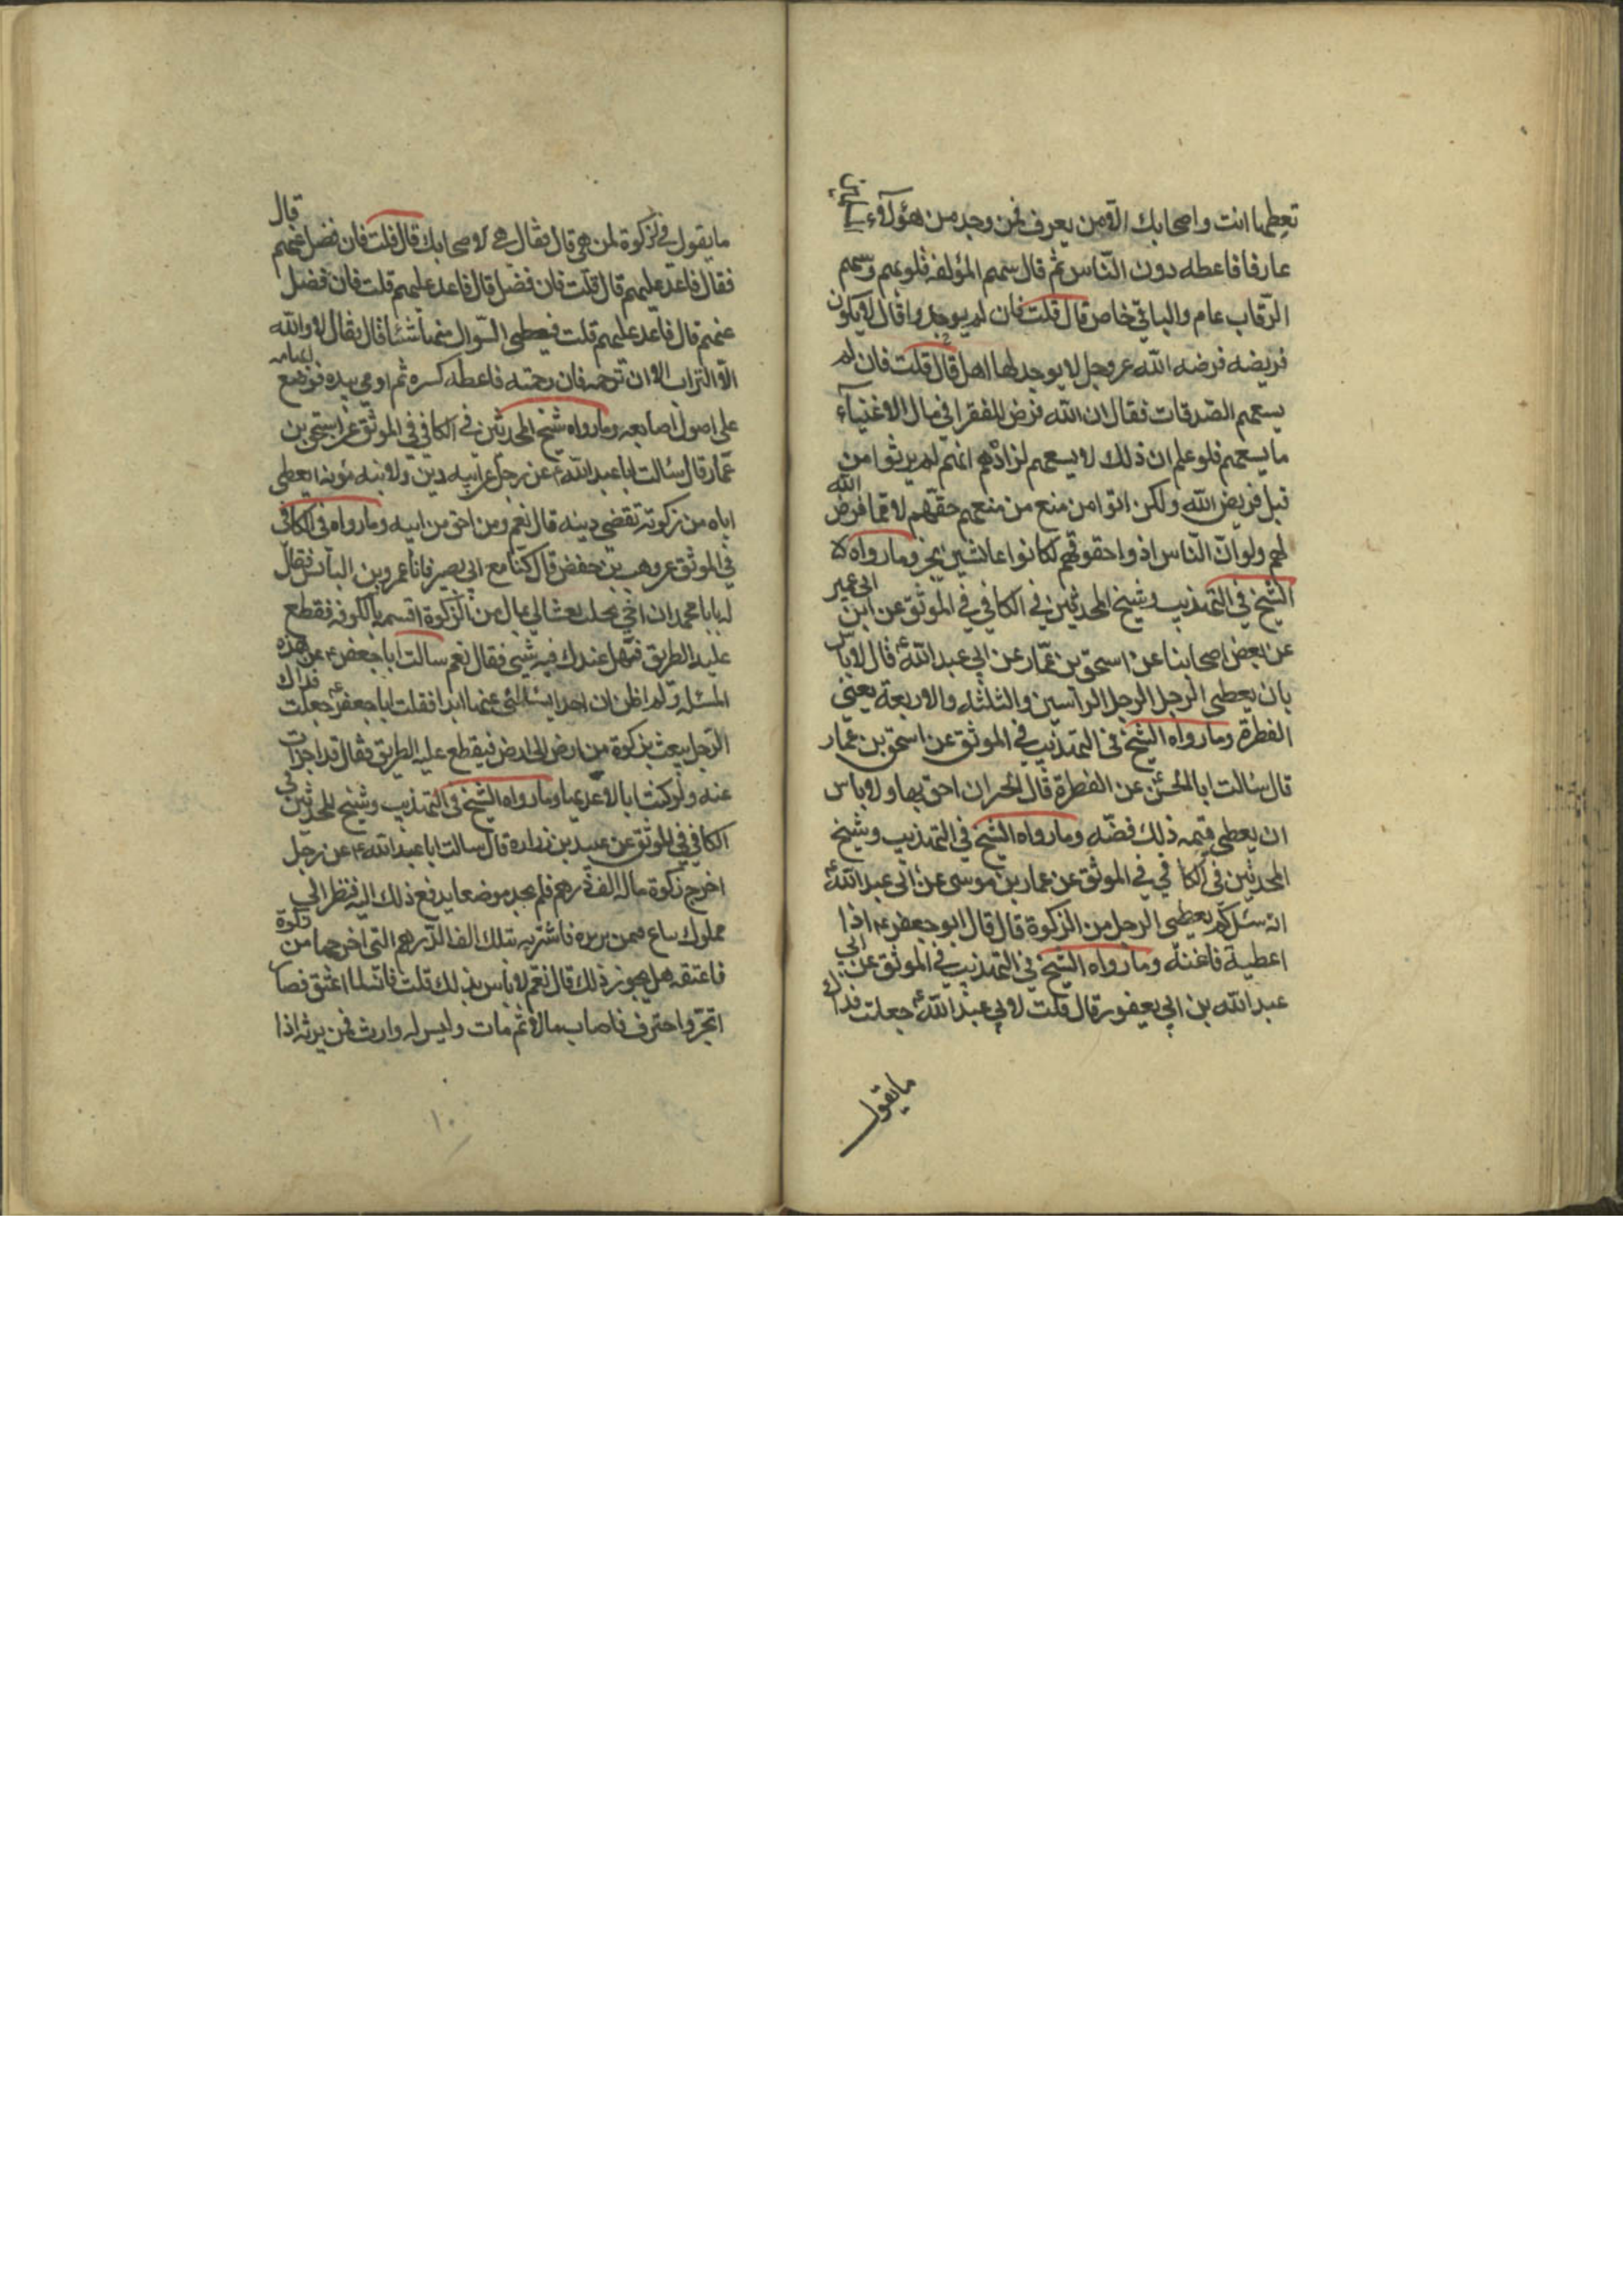 تعطها انت واصحابك الا من يعرف فمن وجد من هؤلاء
عارفا فاعطه دون الناس ثم قال سهم المؤلفه قلوبهم وسهم
الرقاب عام والباقي خاص قال قلت فان لم يوجدوا قال لا يكون
فريضه فرضه الله عز وجل لا يوجد لها اهل قال قلت فان لم
يسعهم الصدقات فقال ان الله فرض للفقرا في مال الاغنيآء
ما يسعهم فلو علم ان ذلك لا يسعهم لزادهم انهم لم يوتوا من
قبل فريض الله ولكن اتوا من منع من منعهم حقهم لا مما فرض الله
لهم ولو ان الناس ادوا حقوقهم لكانوا عائشين بخير وما رواه
الشيخ في التهذيب وشيخ المحدثين في الكافي في الموثق عن ابن ابي عمير
عن بعض اصحابنا عن اسحق بن عمار عن ابي عبد الله ع قال لا باس
بان يعطي الرجل الرجل الراسين والثلثه والاربعة يعني
الفطرة وما رواه الشيخ في التهذيب في الموثق عن اسحق بن عمار
قال سالت ابا الحسن عن الفطرة قال الجيران احق بها ولا باس
ان يعطي قيمه ذلك فضه وما رواه الشيخ في التهذيب وشيخ
المحدثين في الكافي في الموثق عن عمار بن موسى عن ابي عبد الله ع
انه سئل كم يعطى الرجل من الزكوة قال قال ابو جعفر ع اذا
اعطية فاغنه وما رواه الشيخ في التهذيب في الموثق عن ابي
عبد الله بن ابي يعفور قال قلت لابي عبد الله ع جعلت فداك
ما يقول
ما يقول في الزكوة لمن هي قال فقال هي لاصحابك قال قلت فان فضل عنهم قال
فقال فاعد عليهم قال قلت فان فضل قال فاعد عليهم قلت فان فضل
عنهم قال فاعد عليهم قلت فيعطي السوال منها شئا قال فقال لا والله
الا التراب الا ان ترحمه فان رحمته فاعطه كسره ثم اومي بيده فوضع ابهامه
على اصول اصابعه وما رواه شيخ المحدثين في الكافي في الموثق عن اسحق بن
عمار قال سئالت ابا عبد الله ع عن رجل على ابيه دين ولابيه مؤنه ايعطي
اباه من زكوته تقضي دينه قال نعم ومن احق من ابيه وما رواه في الكافي
في الموثق عن وهب بن حفص قال كنا مع ابي بصير فاتا عمرو بن الياس فقال
له يابا محمد ان اخي بحلب بعث الي بمال من الزكوة اقسمه بالكوفه فقطع
عليه الطريق فهل عندك فيه شيي فقال نعم سالت ابا جعفر ع عن هذه
المسئله ولم اظن ان احدا يسئالني عنها ابدا فقلت لابا جعفر ع جعلت فداك
الرجل يبعث بزكوة من ارض الى ارض فيقطع عليه الطريق فقال قد اجزات
عنه ولو كنت انا لاعدتها وما رواه الشيخ في التهذيب وشيخ المحدثين في
الكافي في الموثق عن عبيد بن زراره قال سالت ابا عبد الله ع عن رجل
اخرج زكوة ماله الف درهم فلم يجد موضعا يدفع ذلك اليه فنظر الى
مملوك يباع فيمن يريده فاشتريه بتلك الف الدرهم التي اخرجها من زكوة
فاعتقه هل يجوز ذلك قال نعم لا بأس بذلك قلت فانه لما اعتق فصار
اتجر واحترف فاصاب مالا ثم مات وليس له وارث فمن يرثه اذا